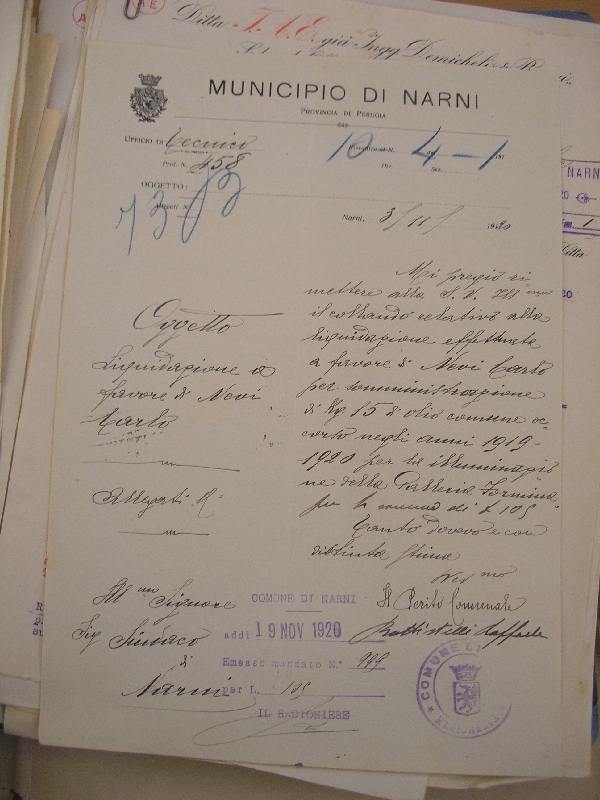 Ditta T.A.E. già Ingg. Domicheli
MUNICIPIO DI NARNI
PROVINCIA DI PERUGIA
UFFICIO DI Tecnico
10 4-1
Prot. N. 458
OGGETTO:
Allegati N.
73
Narni, 3/11/ 1920
Oggetto
Liquidazione a
favore di Novi
Carlo
Allegati N.
Mi pregio ri
mettere alla S. V. Ill ma
il collaudo relativo alla
liquidazione effettuata
a favore di Novi Carlo
per somministrazione
di Kg 15 di olio comune oc
corso negli anni 1919-
1920 per la illuminazio
ne della Galleria Formina
per la somma di £ 105
Tanto dovevo e con
distinta stima
Dev mo
Il Perito Comunale
Battistelli Raffaele
Ill mo Signore
Sig Sindaco
di
Narni
COMUNE DI NARNI
addi 19 NOV 1920
Emesso mandato N.° 999
per L. 105
IL RAGIONIERE
COMUNE DI
RAGIONERIA
NARNI